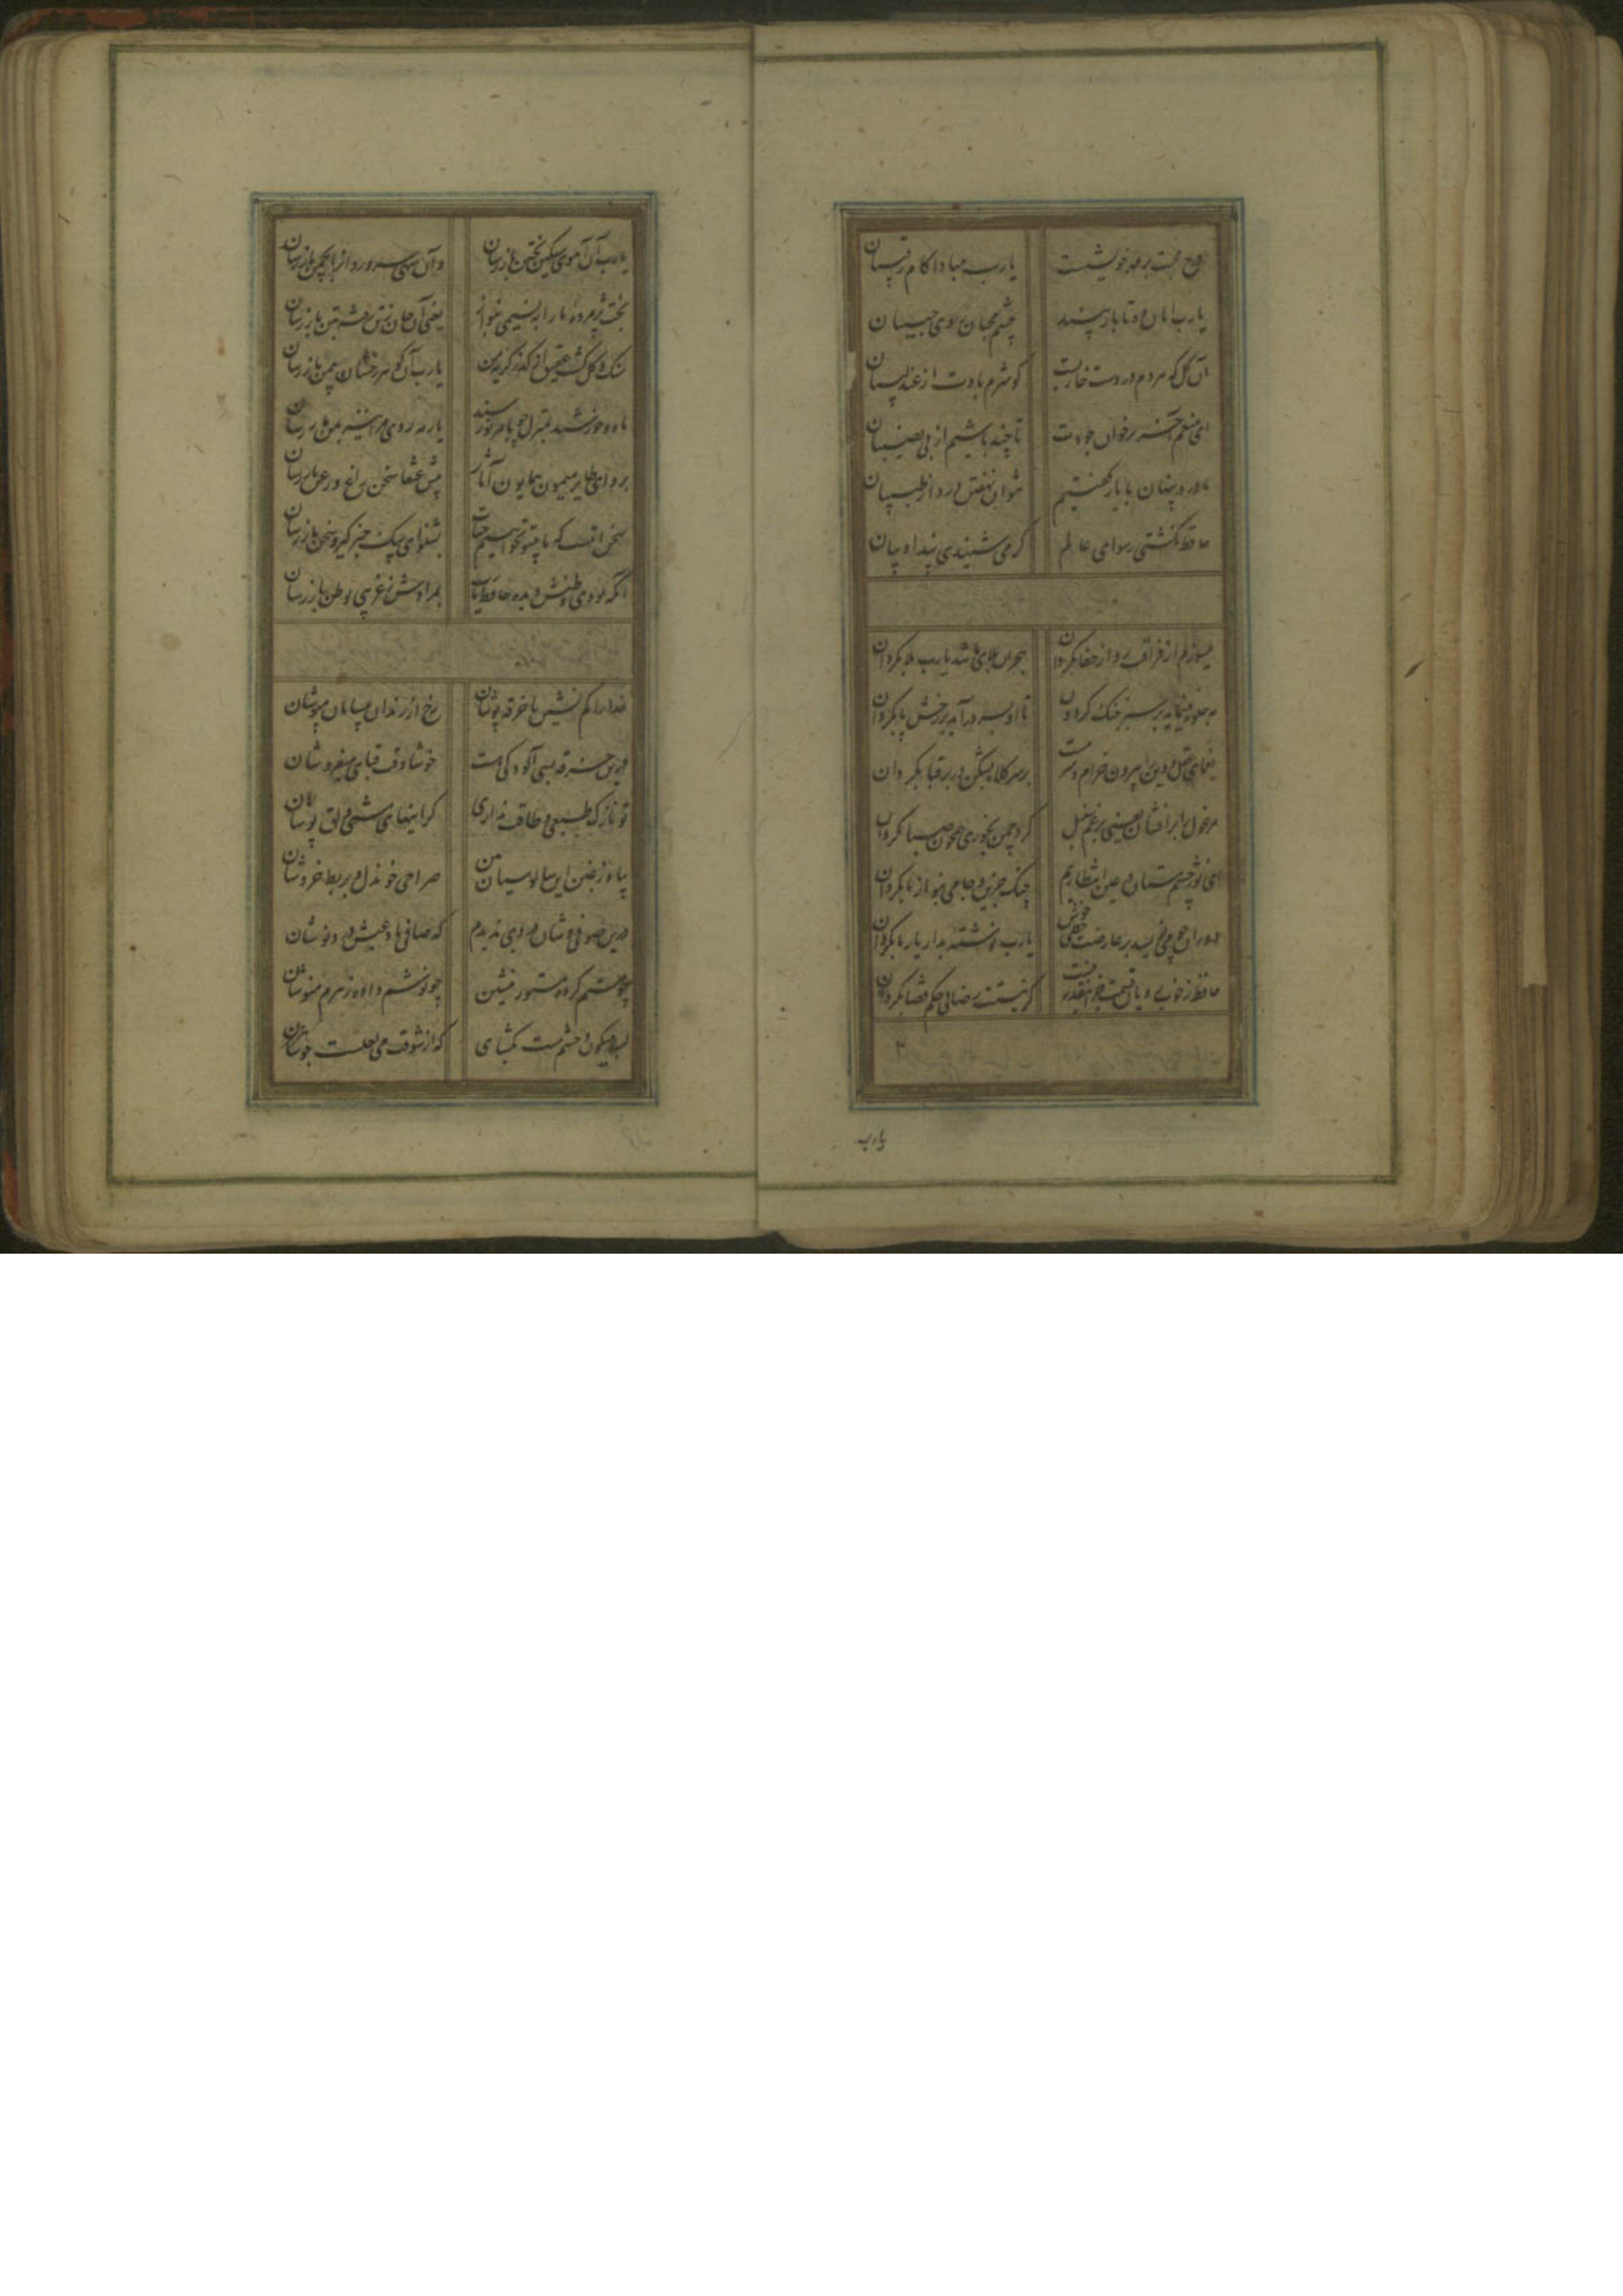 درج محبت بر مهر خویشست یارب مبادا کام رقیبان
یارب امان ده تا باز بیند چشم محبان روی حبیبان
آن گل که هردم در دست خاریست کو شرم بادت از عندلیبان
ای منعم آخر بر خوان جودت تا چند باشیم از بی نصیبان
ما درد پنهان با یار گفتیم نتوان نهفتن درد از طبیبان
حافظ نگشتی رسوای عالم گر می شنیدی پند ادیبان
میسوزم از فراقت رو از جفا بگردان هجران بلای ما شد یارب بلا بگردان
مه جلوه مینماید بر سبز خنک گردون تا او بسر درآید بر رخش پا بگردان
یغمای عقل و دین را بیرون خرام سرمست بر سر کلاه بشکن در بر قبا بگردان
مرغول را برافشان یعنی برغم سنبل گرد چمن بخوری همچون صبا بگردان
ای نور چشم مستان در عین انتظارم چنک حزین و جامی بنواز یا بگردان
دوران چو می نویسد بر عارضت خطی خوش یارب نوشته بد از یار ما بگردان
حافظ ز خوبرویان قسمت جز اینقدر نیست گر نیستت رضائی حکم قضا بگردان
یارب
یارب آن آهوی مشکین بختن باز رسان وان سهی سرو روانرا بچمن باز رسان
بخت پژمرده ما را بنسیمی بنواز یعنی آن جان ز تن رفته بتن باز رسان
یارب آن کوکب رخشان بیمن باز رسان
ماه و خورشید بمنزل چو بامر تو رسند یار مه روی مرا نیز بمن باز رسان
برو ای طایر میمون همایون آثار پیش عنقا سخن زاغ و زغن باز رسان
سخن اینست که ما بیتو نخواهیم حیات بشنو ای پیک خبر گیر و سخن باز رسان
آنکه بودی وطنش دیده حافظ یارب بمرادش ز غریبی بوطن باز رسان
خدا را کم نشین با خرقه پوشان رخ از رندان بیسامان مپوشان
درین خرقه بسی آلودگی هست خوشا وقت قبای میفروشان
تو نازک طبعی و طاقت نداری گرانیهای مشتی دلق پوشان
بیا وز غبن این سالوسیان بین صراحی خون دل و بربط خروشان
درین صوفی وشان دردی ندیدم که صافی باد عیش درد نوشان
چو مستم کرده مستور منشین چو نوشم داده زهرم منوشان
لب میگون و چشم مست بگشای که از شوقت می لعلست جوشان